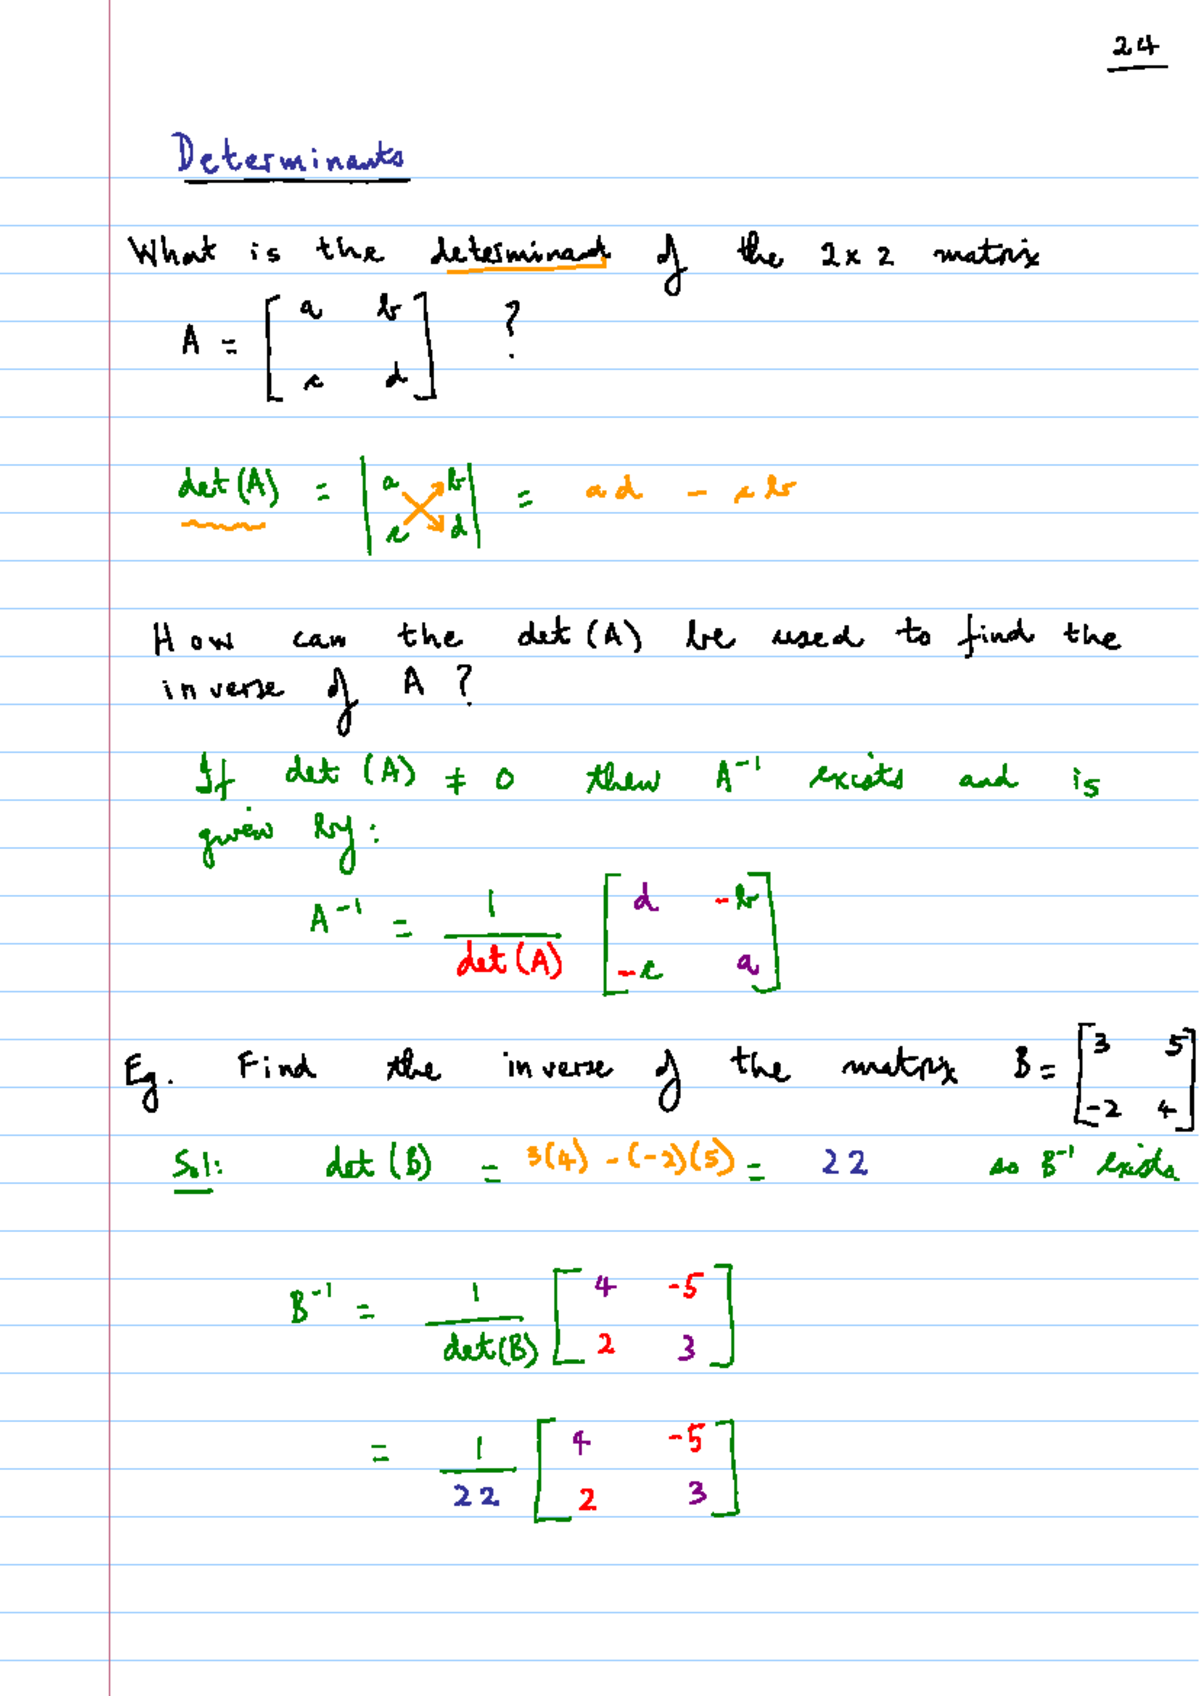 24
Determinants
What is the determinant of the 2x2 matrix
A = [ a b ; c d ] ?
det(A) = | a b ; c d | = ad - cb
How can the det(A) be used to find the
inverse of A ?
If det (A) ≠ 0 then A⁻¹ exists and is
given by:
A⁻¹ = 1/det(A) [ d -b ; -c a ]
Eg. Find the inverse of the matrix B = [ 3 5 ; -2 4 ]
Sol: det (B) = 3(4) - (-2)(5) = 22 so B⁻¹ exists
B⁻¹ = 1/det(B) [ 4 -5 ; 2 3 ]
= 1/22 [ 4 -5 ; 2 3 ]